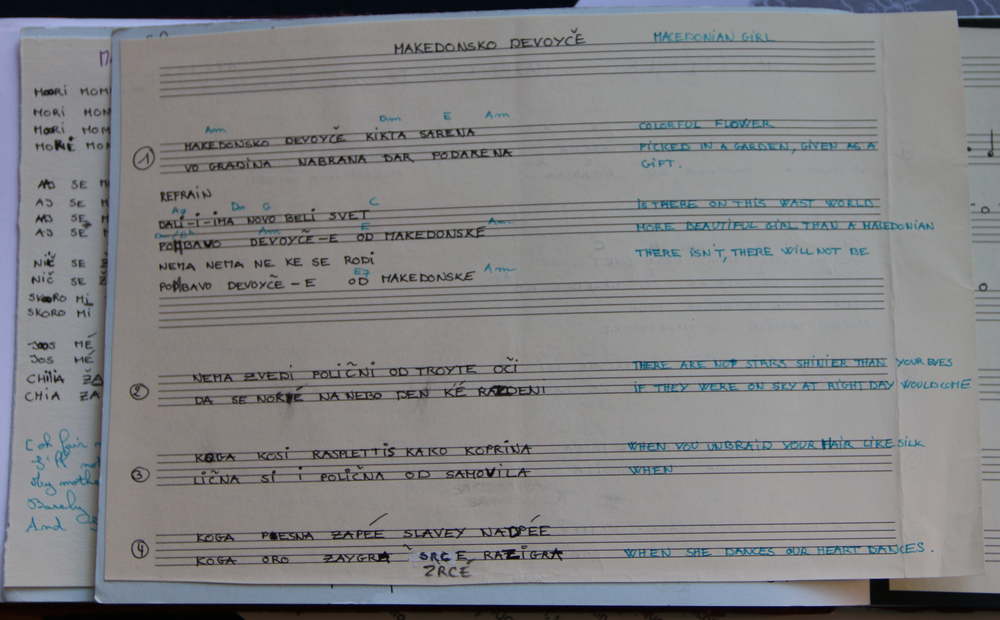 MAKEDONSKO DEVOYČE MAKEDONIAN GIRL
Am Dm E Am
MAKEDONSKO DEVOYČE KİKTA SARENA COLORFUL FLOWER
1 VO GRADİNA NABRANA DAR PODARENA PICKED IN A GARDEN, GIVEN AS A
GİFT.
REFRAIN
Dm G C
DALİ-İ-İMA NOVO BELİ SVET IS THERE ON THIS WAST WORLD
Am E Am
DEVOYČE-E OD MAKEDONSKE MORE BEAUTIFUL GIRL THAN A MAKEDONIAN
NEMA NEMA NE KE SE RODİ THERE ISN'T, THERE WILL NOT BE
E7 Am
DEVOYČE-E OD MAKEDONSKE
NEMA ZVEDİ POLİČNİ OD TROYTE OČİ THERE ARE NOT STARS SHINIER THAN YOUR EYES
2 DA SE NA NEBO DEN KÉ RAZDENI IF THEY WERE ON SKY AT RIGHT DAY WOULD COME
KOGA KOSİ RASPLETTİS KAKO KOPRİNA WHEN YOU UNBRAID YOUR HAIR LIKE SILK
3 LİČNA Sİ İ POLİČNA OD SAMOVİLA WHEN
KOGA PESNA ZAPÉE SLAVEY NADPÉE
4 KOGA ORO ZAYGRA SRCE RAZİGRA WHEN SHE DANCES OUR HEART DANCES.
ZRCÉ
MORİ MOM
MORİ MOM
MORİ MOM
AJ SE
AJ SE
AJ SE
NİČ SE
NİČ SE
SKORO Mİ
SKORO Mİ
JOS MÉ
JOS MÉ
CHILIA
CHIA ZA
And